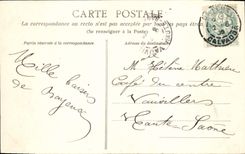 CARTE POSTALE
La correspondance au recto n'est pas acceptée par tous les pays étrangers
(Se renseigner à la Poste)
Partie réservée à la correspondance
Adresse du destinataire
CALVADOS
Mille baisers
de Bayeux
M. Hélène Mathieu
Café du centre
Vauvillers
Haute Saone